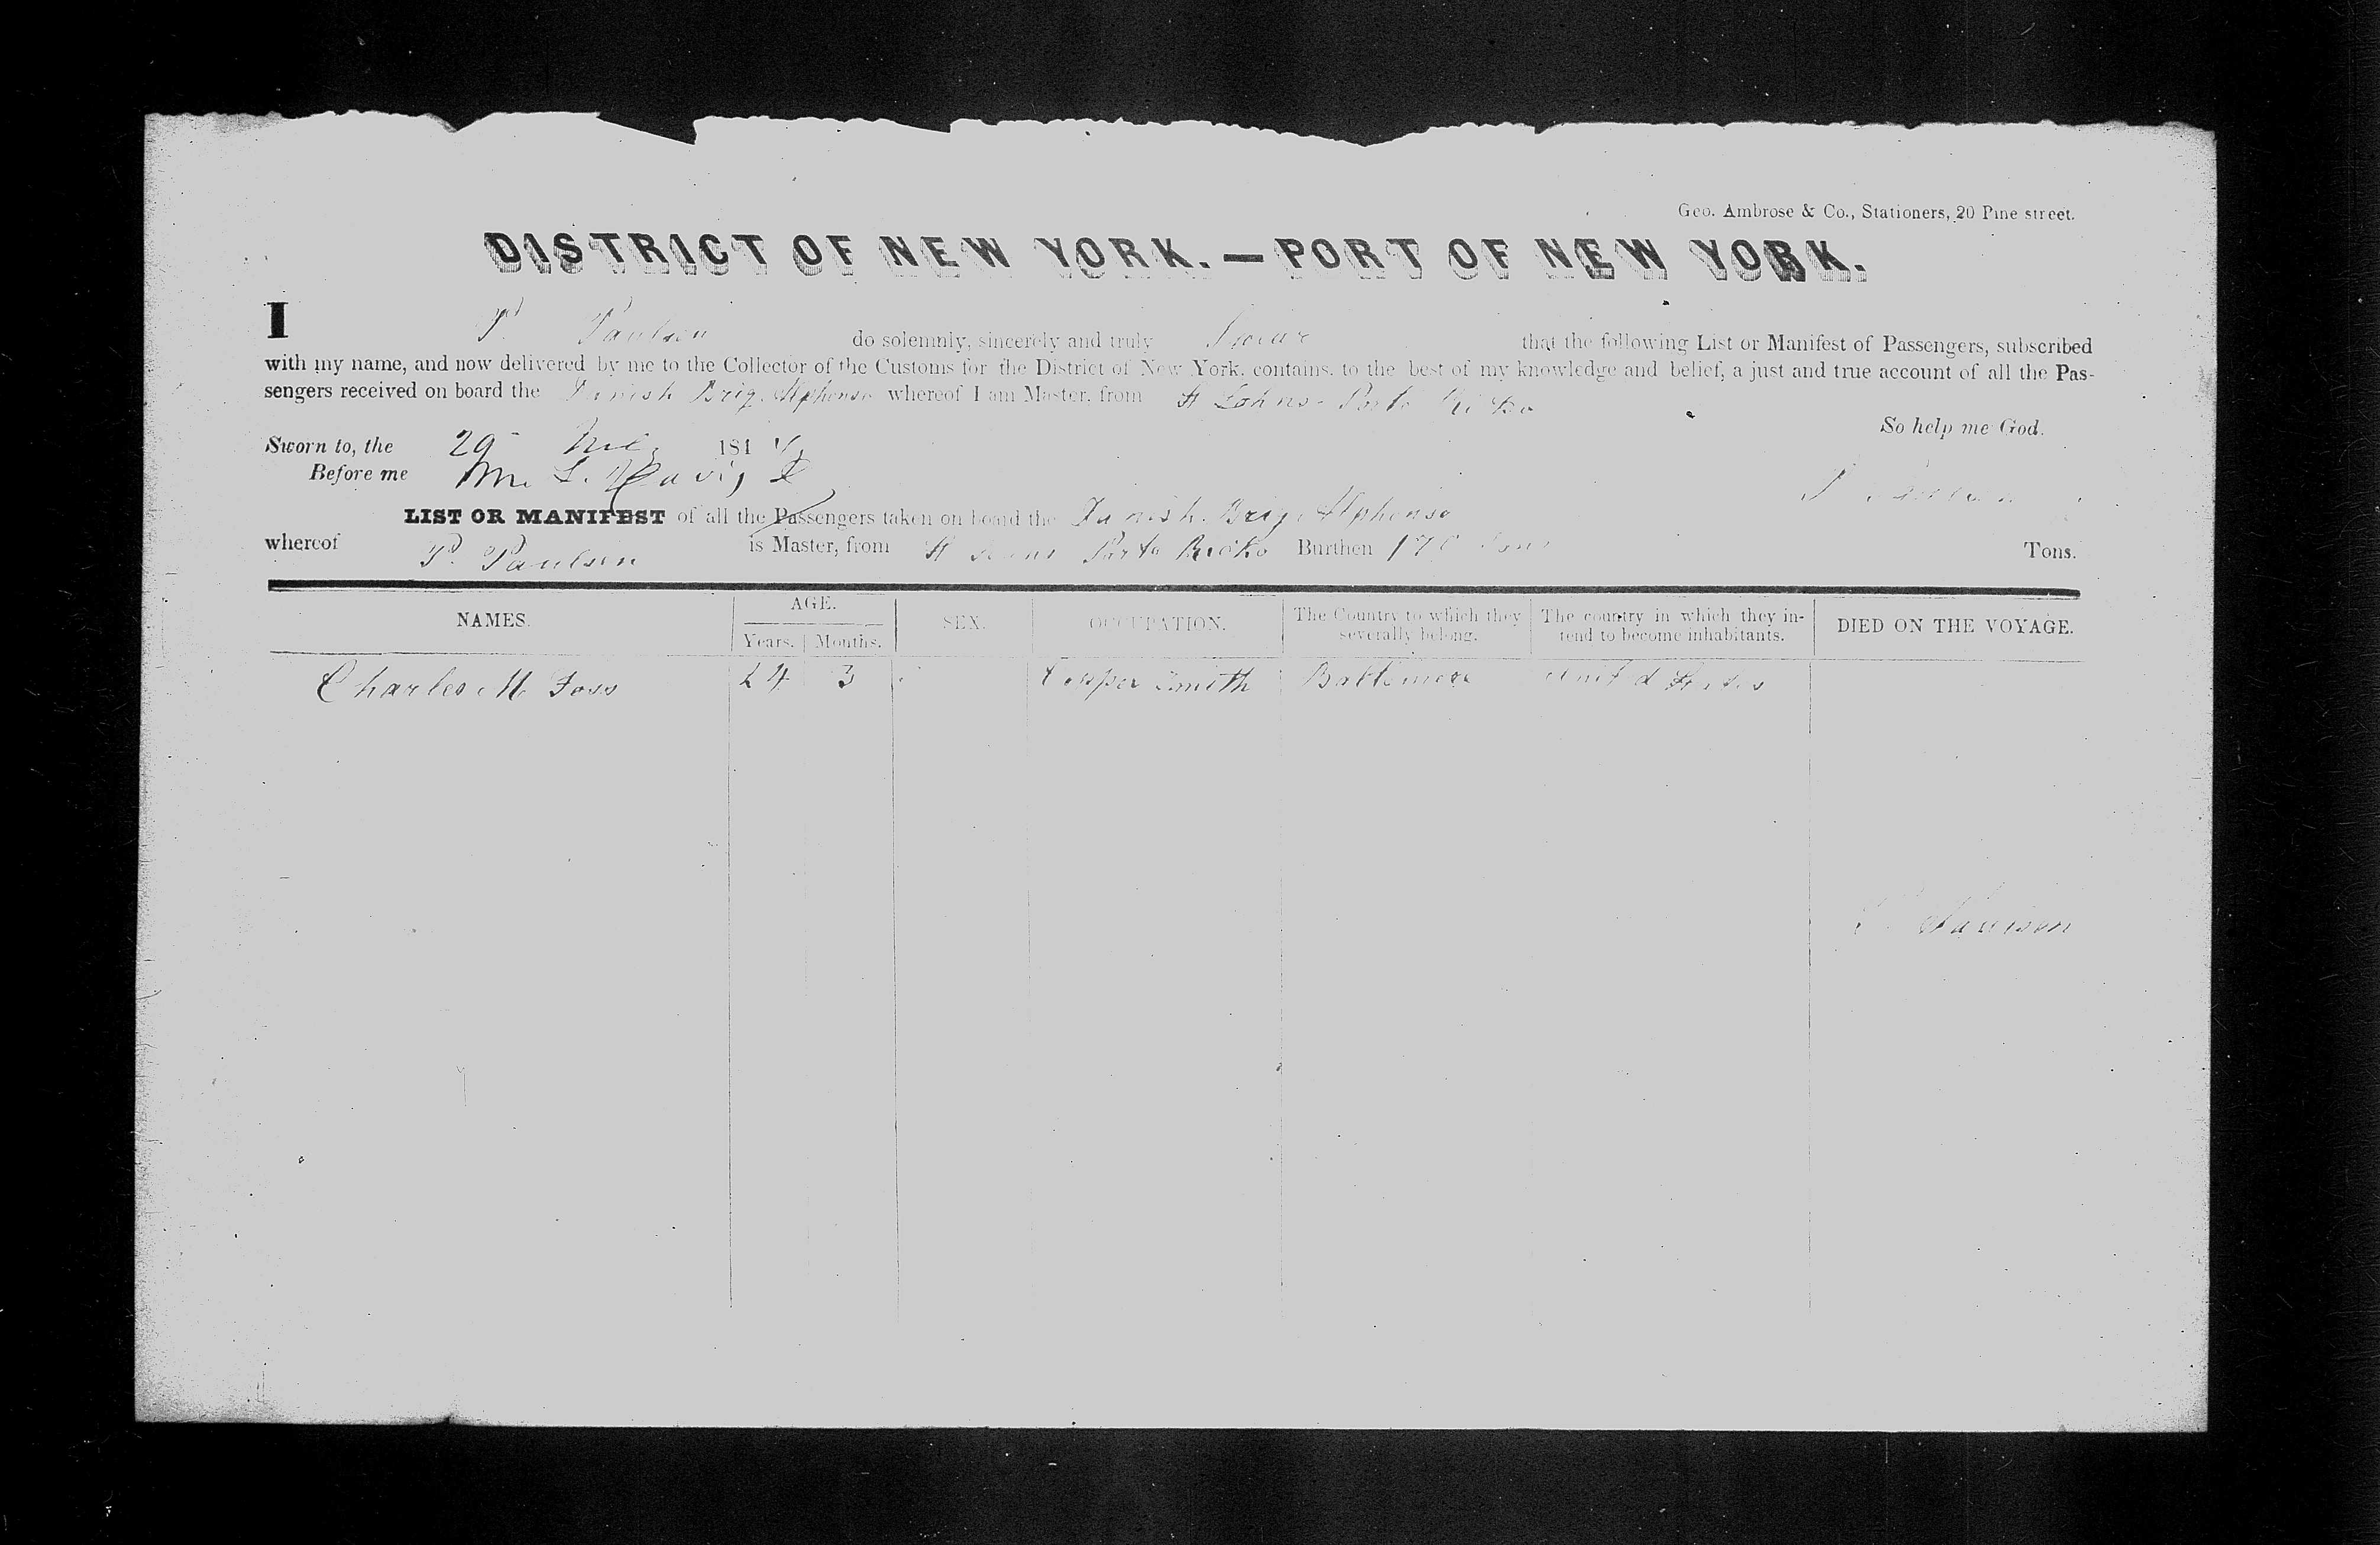 Geo. Ambrose & Co., Stationers, 20 Pine street.
DISTRICT OF NEW YORK.—PORT OF NEW YORK.
I P Paulsen do solemnly, sincerely and truly Swear that the following List or Manifest of Passengers, subscribed
with my name, and now delivered by me to the Collector of the Customs for the District of New York, contains, to the best of my knowledge and belief, a just and true account of all the Pas-
sengers received on board the Danish Brig. Alphonso whereof I am Master, from St Johns Porto
So help me God.
Sworn to, the 29 184
Before me Davis
LIST OR MANIFEST of all the Passengers taken on board the Danish. Brig. Alphonso
whereof P. Paulsen is Master, from St Porto Burthen Tons.
NAMES. AGE. Years. Months. SEX. OCCUPATION. The Country to which they severally belong. The country in which they in-tend to become inhabitants. DIED ON THE VOYAGE.
Charles M Foss 24 3 Copper Smith Baltimore United States